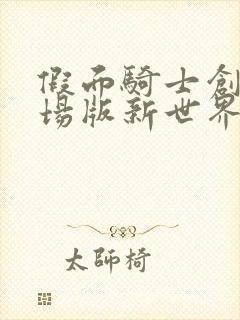 假而騎士創
場版新世界
太師椅